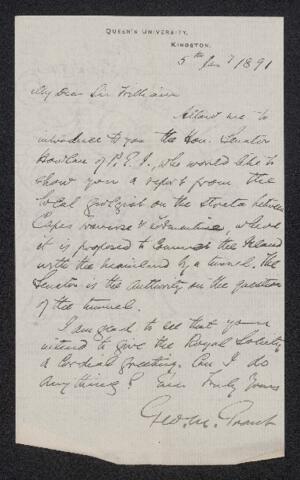 QUEEN'S UNIVERSITY,
KINGSTON.
5th Jany 1891
My Dear Sir William
Allow me to
introduce to you the Hon. Senator
Howlan of P.E.I., who would like to
show you a report from the
local geologist on the strata between
Capes Traverse & Tormentine, where
it is proposed to connect the Island
with the mainland by a tunnel. The
Senator is the authority on the question
of the tunnel.
I am glad to see that you
intend to give the Royal Society
a cordial greeting. Can I do
anything? Truly Yours
Geo. M. Grant